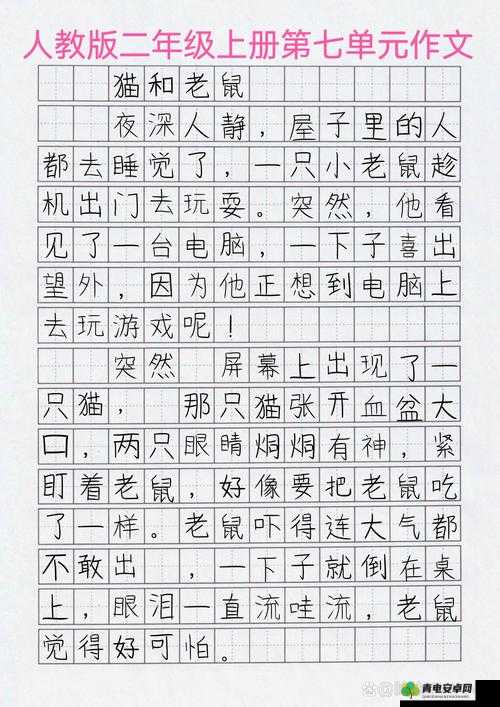 人教版二年级上册第七单元作文
猫和老鼠
夜深人静，屋子里的人
都去睡觉了，一只小老鼠趁
机出门去玩耍。突然，他看
见了一台电脑，一下子喜出
望外，因为他正想到电脑上
去玩游戏呢！
突然 屏幕上出现了一
只猫， 那只猫张开血盆大
口，两只眼睛炯炯有神，紧
盯着老鼠，好像要把老鼠吃
了一样。老鼠吓得连大气都
不敢出，一下子就倒在桌
上，眼泪一直流哇流，老鼠
觉得好可怕。
青电安卓网